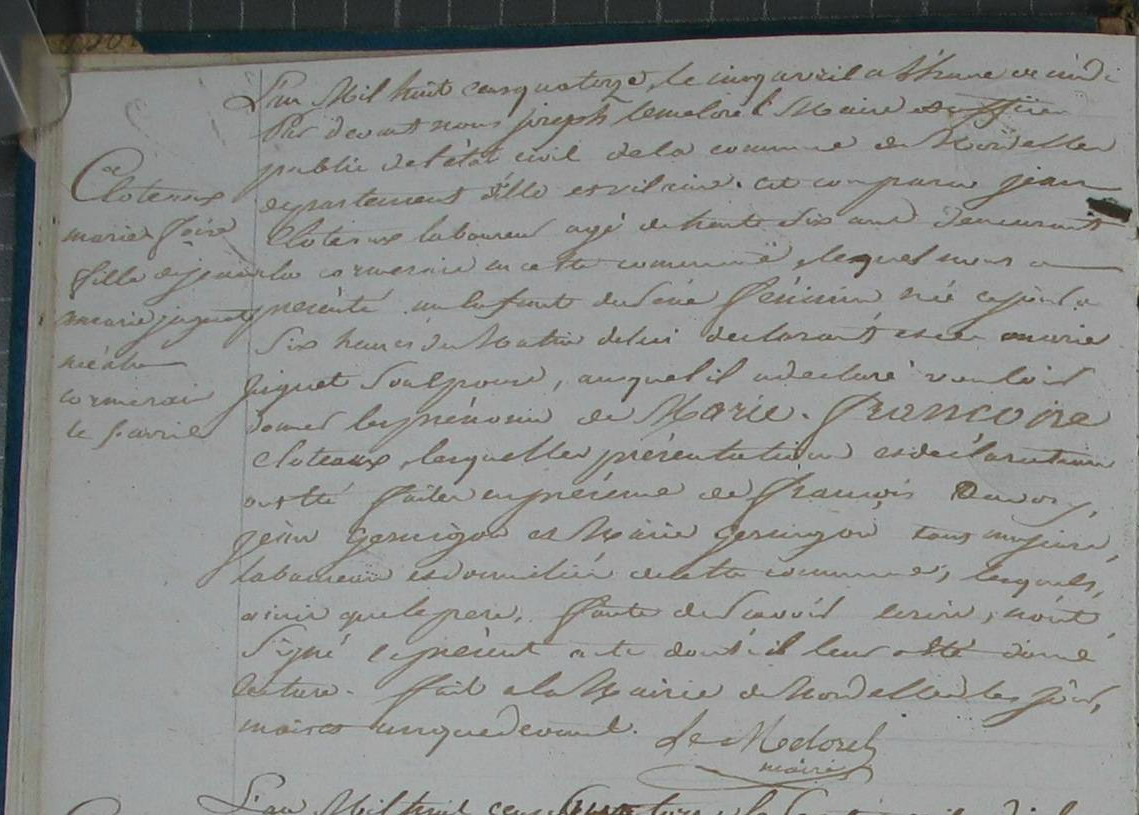 L'an Mil huit cens quatorze, le cinq avril a l'heure de midi
Par devant nous joseph Lemelorel Maire et officier
public de l'état civil de la commune de Mordellen
departement d'ille et vilaine. est comparu jean
Cloteaux laboureur agé de trente six ans demeurant
la cormerais en cette commune, lequel nous a
présenté un Enfant du Sexe féminin née ce jour a
Six heures du Matin de lui declarant et de marie
juguet Son Epouse, auquel il a declaré vouloir
donner les prénoms de Marie. francoise
Cloteaux, lesquelles présentation et déclaration
ont été faites en présence de françois
jean Gernigon et Marie Gernigon tous majeurs,
laboureurs et domiciliés de cette commune, lesquels,
ainsi que le pere, faute de Scavoir ecrire, n'ont
Signé le présent acte dont il leur a été donné
lecture. fait a la Mairie de Mordellen les jour,
mois et an que devant.
Le Melorel
maire
Cloteaux
marie foise
fille de jean
marie juguet
née a la
cormerais
le 5 avril
L'an Mil huit cens